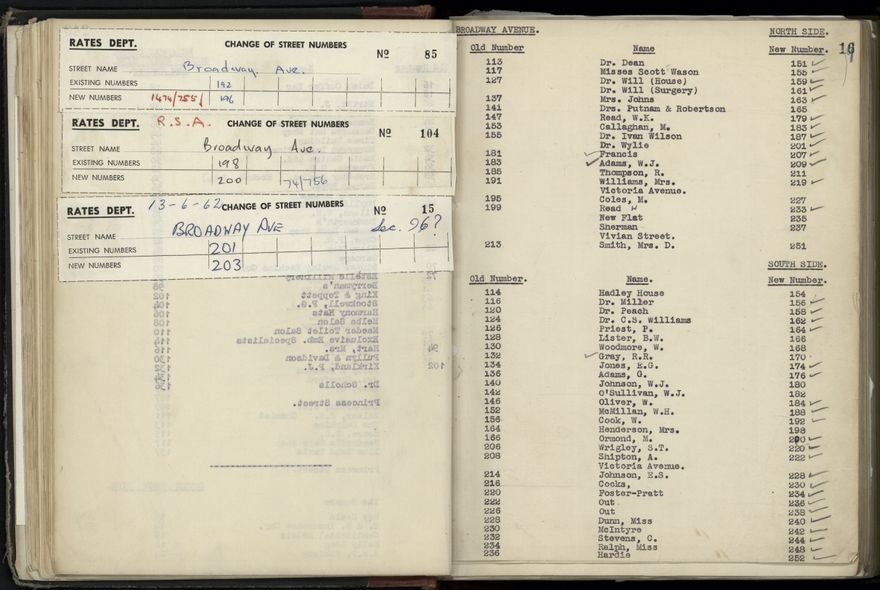 RATES DEPT. CHANGE OF STREET NUMBERS
No 85
STREET NAME Broadway. Ave.
EXISTING NUMBERS 192
NEW NUMBERS 1474/755 196
RATES DEPT. R.S.A. CHANGE OF STREET NUMBERS
No 104
STREET NAME Broadway Ave.
EXISTING NUMBERS 198
NEW NUMBERS 200 74/756
RATES DEPT. 13-6-62 CHANGE OF STREET NUMBERS
No 15
STREET NAME BROADWAY AVE Sec. 96?
EXISTING NUMBERS 201
NEW NUMBERS 203
BROADWAY AVENUE. NORTH SIDE.
Old Number Name New Number. 16
113 Dr. Dean 151
117 Misses Scott Wason 155
127 Dr. Will (House) 159
Dr. Will (Surgery) 161
137 Mrs. Johns 163
141 Drs. Putnam & Robertson 165
147 Read, W.K. 179
153 Callaghan, M. 183
155 Dr. Ivan Wilson 187
Dr. Wylie 201
181 Francis 207
183 Adams, W.J. 209
185 Thompson, R. 211
191 Williams, Mrs. 219
Victoria Avenue.
195 Coles, M. 227
199 Read 233
New Flat 235
Sherman 237
Vivian Street.
213 Smith, Mrs. D. 251
SOUTH SIDE.
Old Number. Name. New Number.
114 Hadley House 154
116 Dr. Miller 156
120 Dr. Peach 158
124 Dr. C.S. Williams 162
126 Priest, P. 164
128 Lister, B.W. 166
130 Woodmore, W. 168
132 Gray, R.R. 170
134 Jones, E.G. 174
136 Adams, G. 176
140 Johnson, W.J. 180
142 O'Sullivan, W.J. 182
146 Oliver, W. 184
152 McMillan, W.H. 188
156 Cook, W. 192
164 Henderson, Mrs. 198
166 Ormond, M. 200
206 Wrigley, S.T. 220
208 Shipton, A. 222
Victoria Avenue.
214 Johnson, E.S. 228
216 Cocks, 230
220 Foster-Pratt 234
222 Out 236
226 Out 238
228 Dunn, Miss 240
230 McIntyre 242
232 Stevens, C. 244
234 Ralph, Miss 248
236 Hardie 252